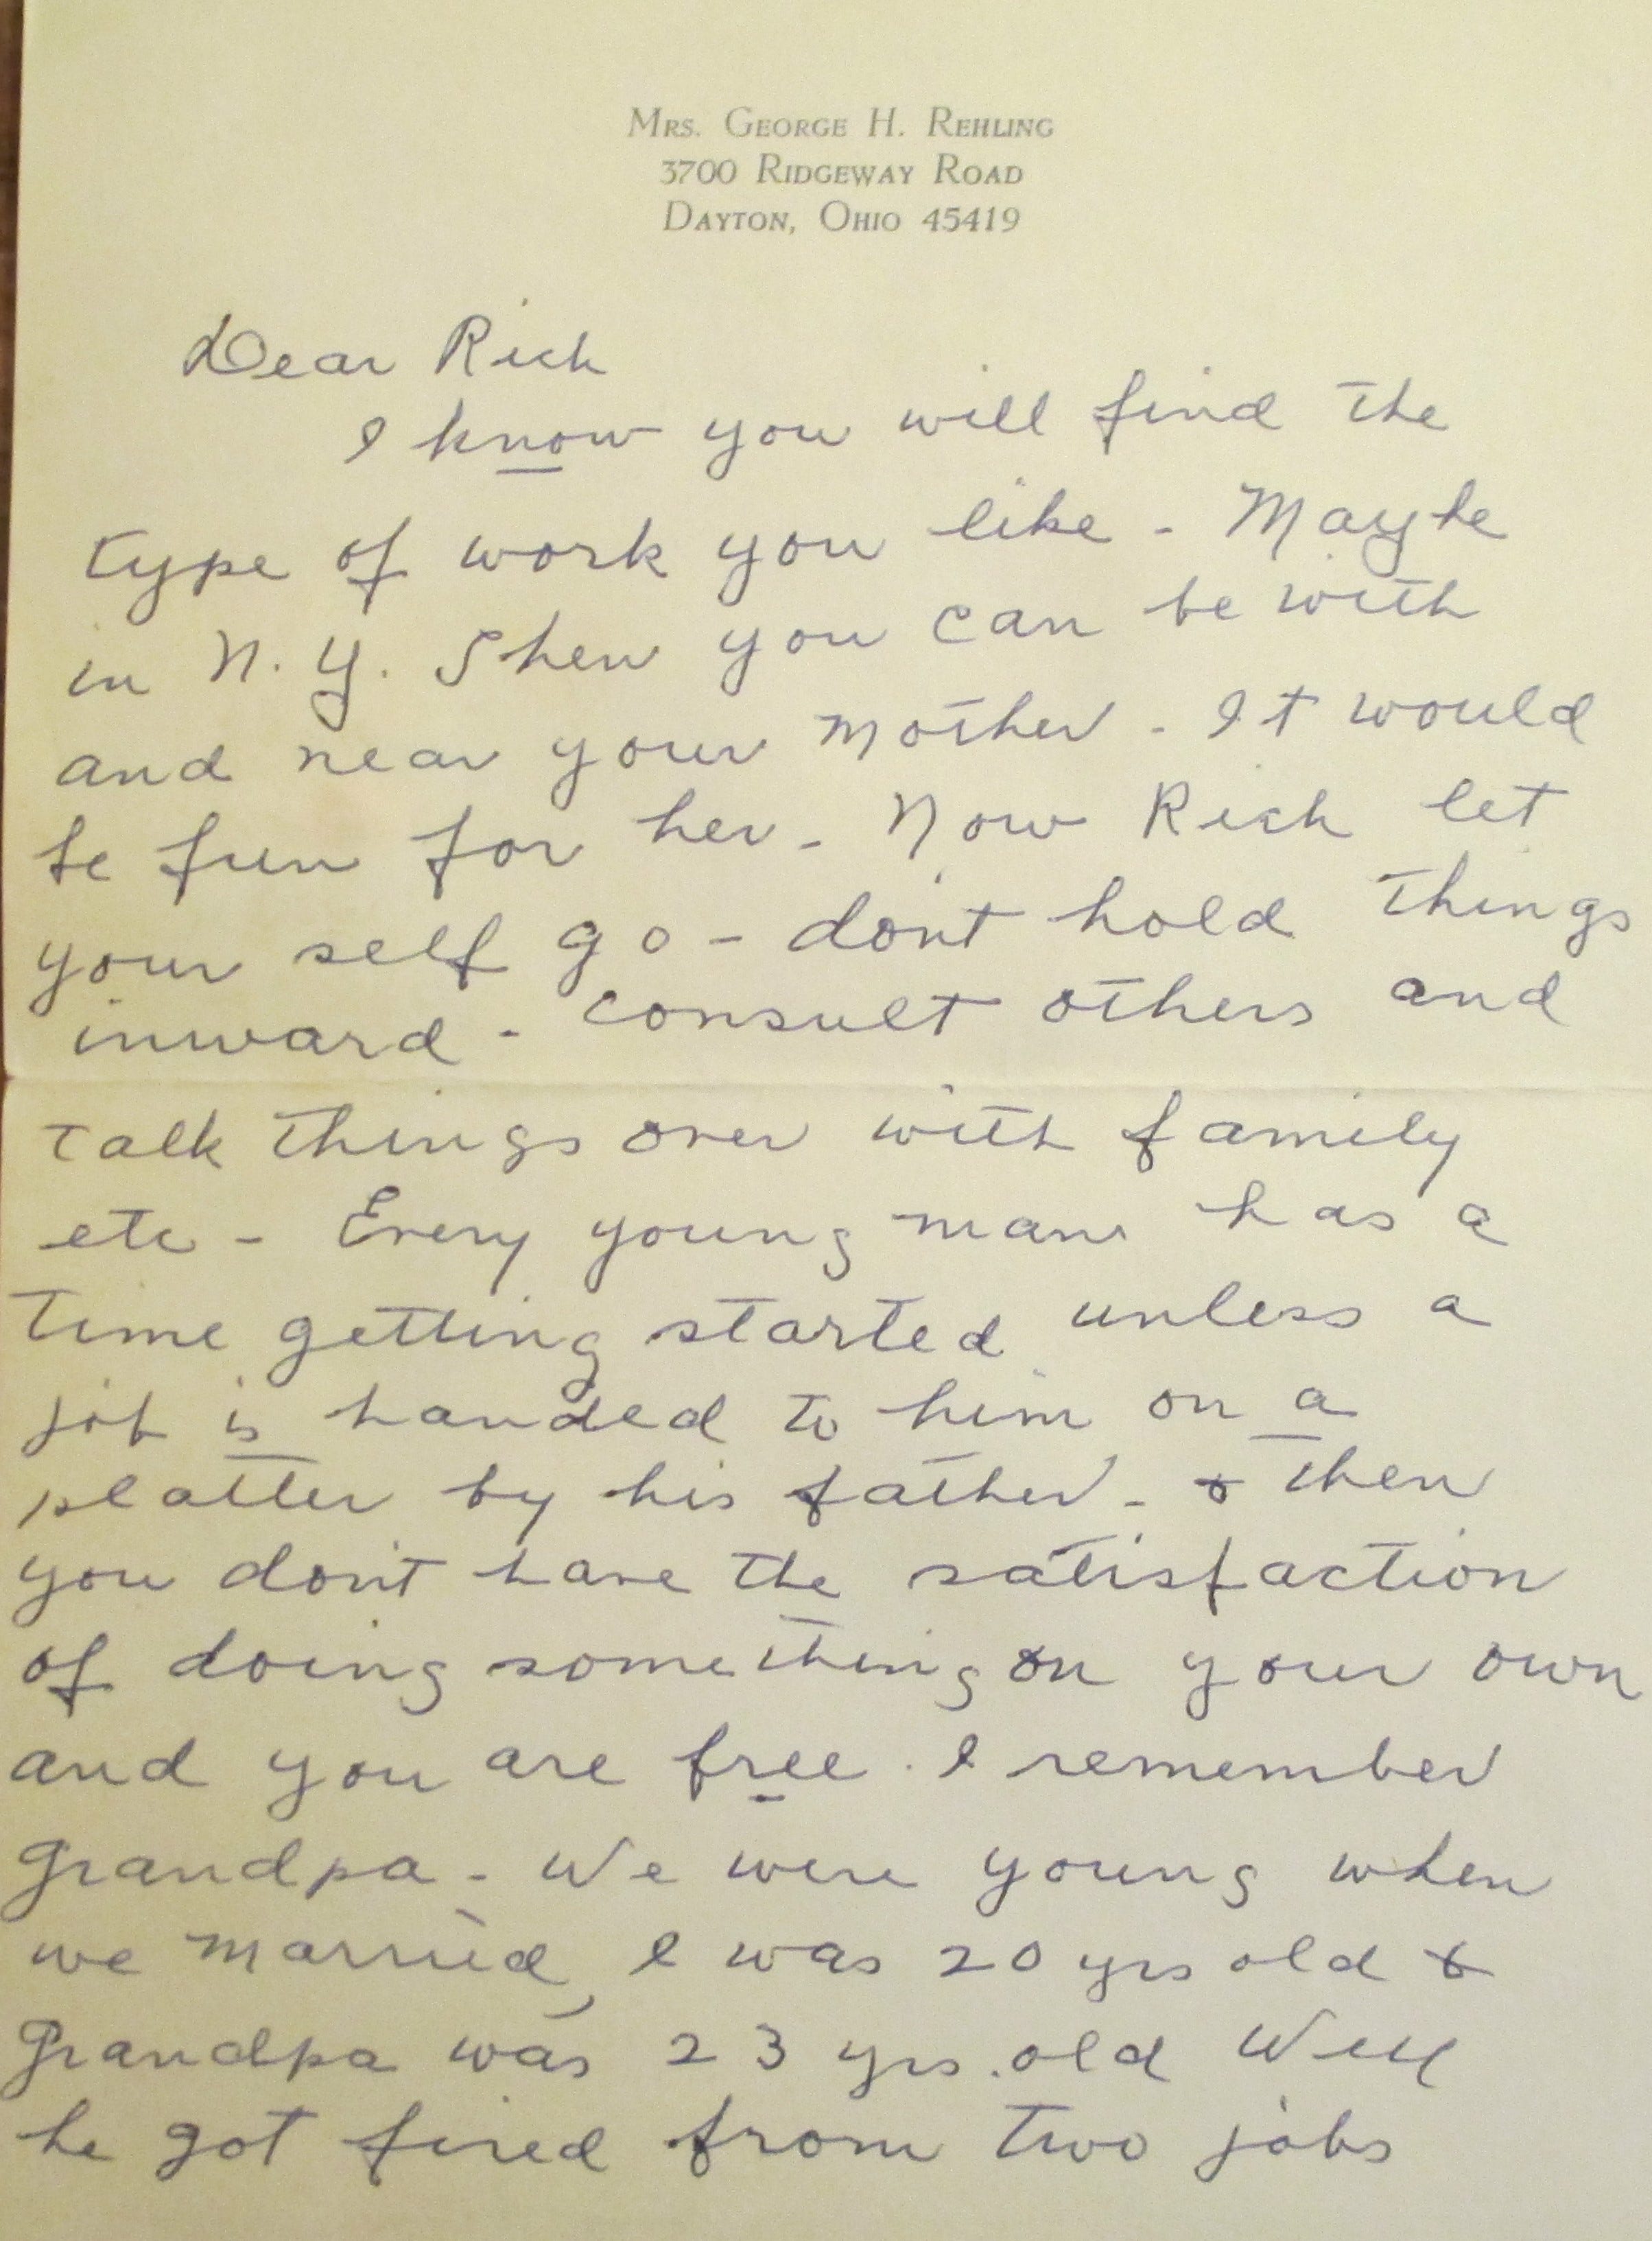 Mrs. George H. Rehling
3700 Ridgeway Road
Dayton, Ohio 45419
Dear Rich
I know you will find the
type of work you like - Maybe
in N.Y. Then you can be with
and near your mother - It would
be fun for her - Now Rich let
your self go - don't hold things
inward - consult others and
talk things over with family
etc - Every young man has a
time getting started unless a
job is handed to him on a
platter by his father - & then
you don't have the satisfaction
of doing something on your own
and you are free. I remember
Grandpa - We were young when
we married, I was 20 yrs old &
Grandpa was 23 yrs. old Well
he got fired from two jobs